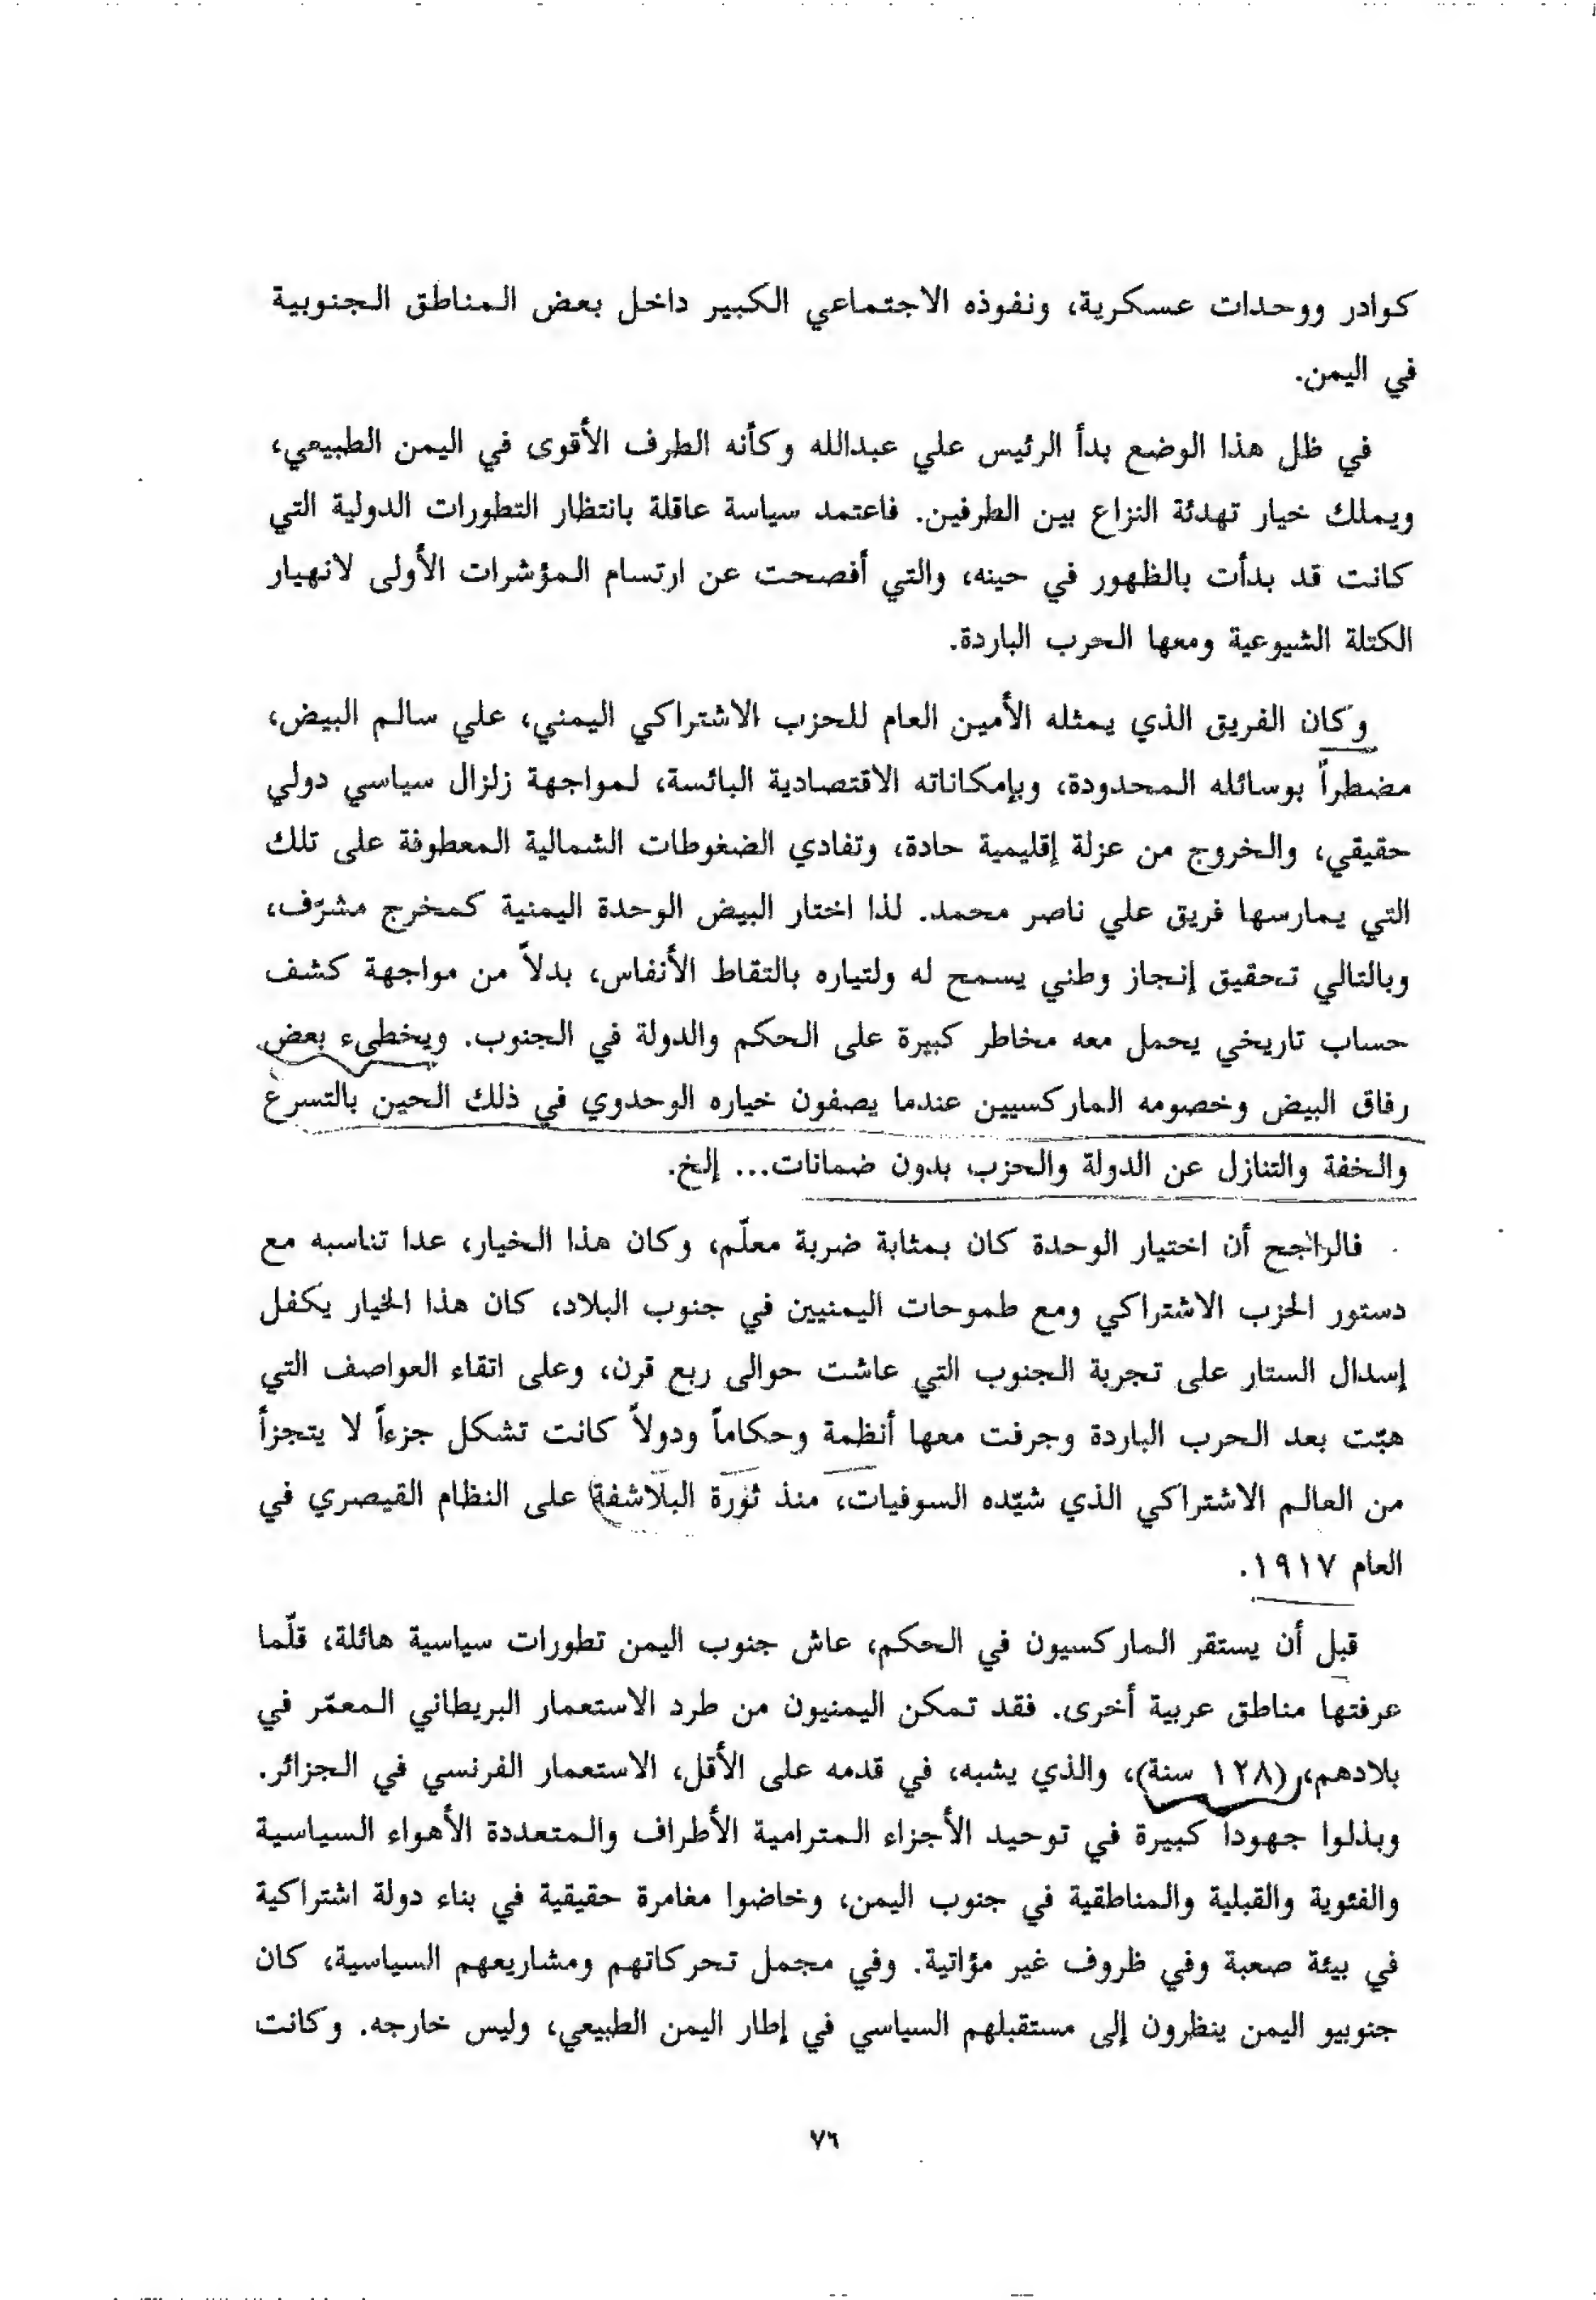 كوادر ووحدات عسكرية، ونفوذه الاجتماعي الكبير داخل بعض المناطق الجنوبية
في اليمن.
في ظل هذا الوضع بدأ الرئيس علي عبدالله وكأنه الطرف الأقوى في اليمن الطبيعي،
ويملك خيار تهدئة النزاع بين الطرفين. فاعتمد سياسة عاقلة بانتظار التطورات الدولية التي
كانت قد بدأت بالظهور في حينه، والتي أفصحت عن ارتسام المؤشرات الأولى لانهيار
الكتلة الشيوعية ومعها الحرب الباردة.
وكان الفريق الذي يمثله الأمين العام للحزب الاشتراكي اليمني، علي سالم البيض،
مضطراً بوسائله المحدودة، وبإمكاناته الاقتصادية البائسة، لمواجهة زلزال سياسي دولي
حقيقي، والخروج من عزلة إقليمية حادة، وتفادي الضغوطات الشمالية المعطوفة على تلك
التي يمارسها فريق علي ناصر محمد. لذا اختار البيض الوحدة اليمنية كمخرج مشرّف،
وبالتالي تحقيق إنجاز وطني يسمح له ولتياره بالتقاط الأنفاس، بدلاً من مواجهة كشف
حساب تاريخي يحمل معه مخاطر كبيرة على الحكم والدولة في الجنوب. ويخطىء بعض
رفاق البيض وخصومه الماركسيين عندما يصفون خياره الوحدوي في ذلك الحين بالتسرع
والخفة والتنازل عن الدولة والحزب بدون ضمانات... إلخ.
فالراجح أن اختيار الوحدة كان بمثابة ضربة معلّم، وكان هذا الخيار، عدا تناسبه مع
دستور الحزب الاشتراكي ومع طموحات اليمنيين في جنوب البلاد، كان هذا الخيار يكفل
إسدال الستار على تجربة الجنوب التي عاشت حوالى ربع قرن، وعلى اتقاء العواصف التي
هبّت بعد الحرب الباردة وجرفت معها أنظمة وحكاماً ودولاً كانت تشكل جزءاً لا يتجزأ
من العالم الاشتراكي الذي شيّده السوفيات، منذ ثورة البلاشفة على النظام القيصري في
العام ١٩١٧.
قبل أن يستقر الماركسيون في الحكم، عاش جنوب اليمن تطورات سياسية هائلة، قلّما
عرفتها مناطق عربية أخرى. فقد تمكن اليمنيون من طرد الاستعمار البريطاني المعمّر في
بلادهم، (١٢٨ سنة)، والذي يشبه، في قدمه على الأقل، الاستعمار الفرنسي في الجزائر.
وبذلوا جهوداً كبيرة في توحيد الأجزاء المترامية الأطراف والمتعددة الأهواء السياسية
والفئوية والقبلية والمناطقية في جنوب اليمن، وخاضوا مغامرة حقيقية في بناء دولة اشتراكية
في بيئة صعبة وفي ظروف غير مؤاتية. وفي مجمل تحركاتهم ومشاريعهم السياسية، كان
جنوبيو اليمن ينظرون إلى مستقبلهم السياسي في إطار اليمن الطبيعي، وليس خارجه. وكانت
٧٦